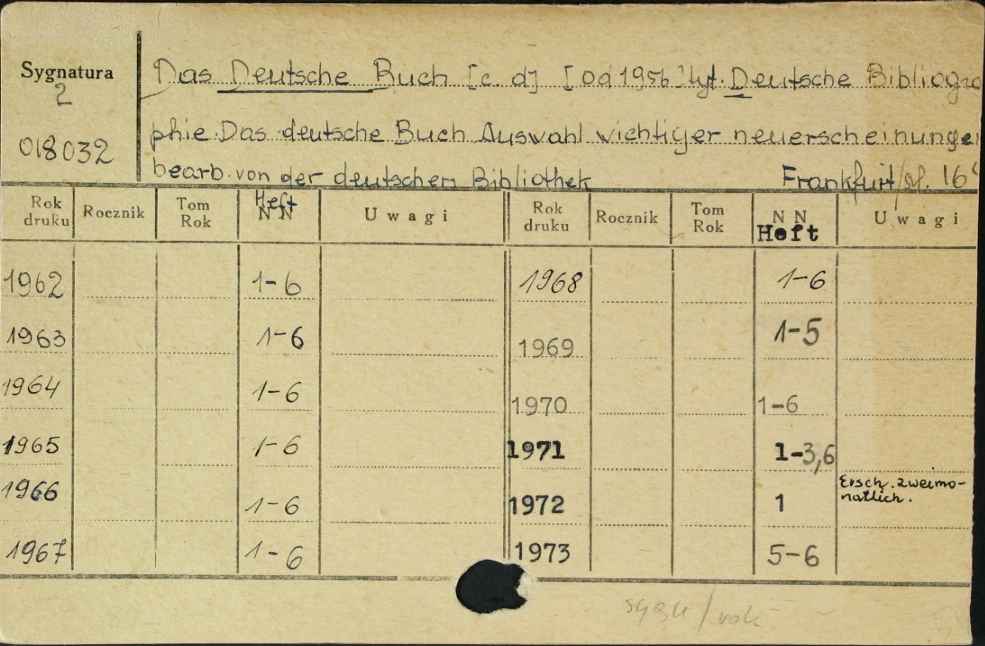 Sygnatura
2
018032
Das Deutsche Buch [c. d] [od 1956 tyt. Deutsche Bibliogra
phie. Das deutsche Buch Auswahl wichtiger neuerscheinungen
bearb. von der deutschen Bibliothek Frankfurt/M. 16°
Rok druku Rocznik Tom Rok Heft N N Uwagi Rok druku Rocznik Tom Rok N N Heft Uwagi
1962 1-6 1968 1-6
1963 1-6 1969 1-5
1964 1-6 1970 1-6
1965 1-6 1971 1-3,6
1966 1-6 1972 1 Ersch. zweimo-
natlich.
1967 1-6 1973 5-6